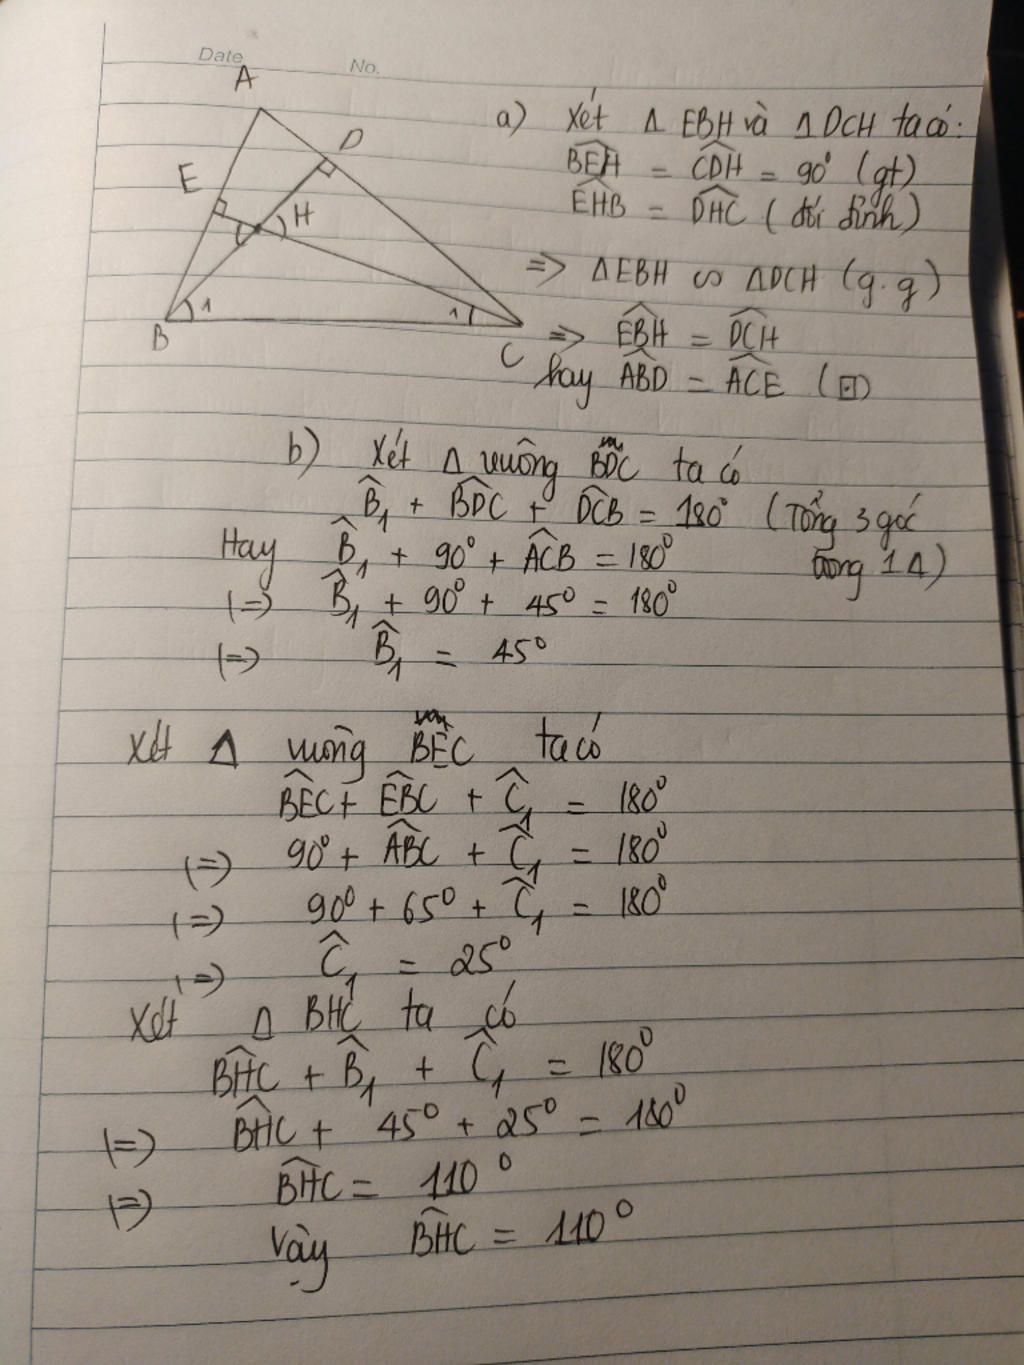 Date No.
A
D
E
H
B 1 1 C
a) Xét Δ EBH và Δ DCH ta có:
$\widehat{BEH}$ = $\widehat{CDH}$ = 90° (gt)
$\widehat{EHB}$ = $\widehat{DHC}$ (đối đỉnh)
=> ΔEBH ∽ ΔDCH (g.g)
=> $\widehat{EBH}$ = $\widehat{DCH}$
hay $\widehat{ABD}$ = $\widehat{ACE}$ (⊡)
b) Xét Δ vuông BDC ta có
$\widehat{B}_1$ + $\widehat{BDC}$ + $\widehat{DCB}$ = 180° (Tổng 3 góc
trong 1 Δ)
Hay $\widehat{B}_1$ + 90° + $\widehat{ACB}$ = 180°
(=) $\widehat{B}_1$ + 90° + 45° = 180°
(=) $\widehat{B}_1$ = 45°
Xét Δ vuông BEC ta có
$\widehat{BEC}$ + $\widehat{EBC}$ + $\widehat{C}_1$ = 180°
(=) 90° + $\widehat{ABC}$ + $\widehat{C}_1$ = 180°
(=) 90° + 65° + $\widehat{C}_1$ = 180°
(=) $\widehat{C}_1$ = 25°
Xét Δ BHC ta có
$\widehat{BHC}$ + $\widehat{B}_1$ + $\widehat{C}_1$ = 180°
(=) $\widehat{BHC}$ + 45° + 25° = 180°
(=) $\widehat{BHC}$ = 110°
Vậy $\widehat{BHC}$ = 110°